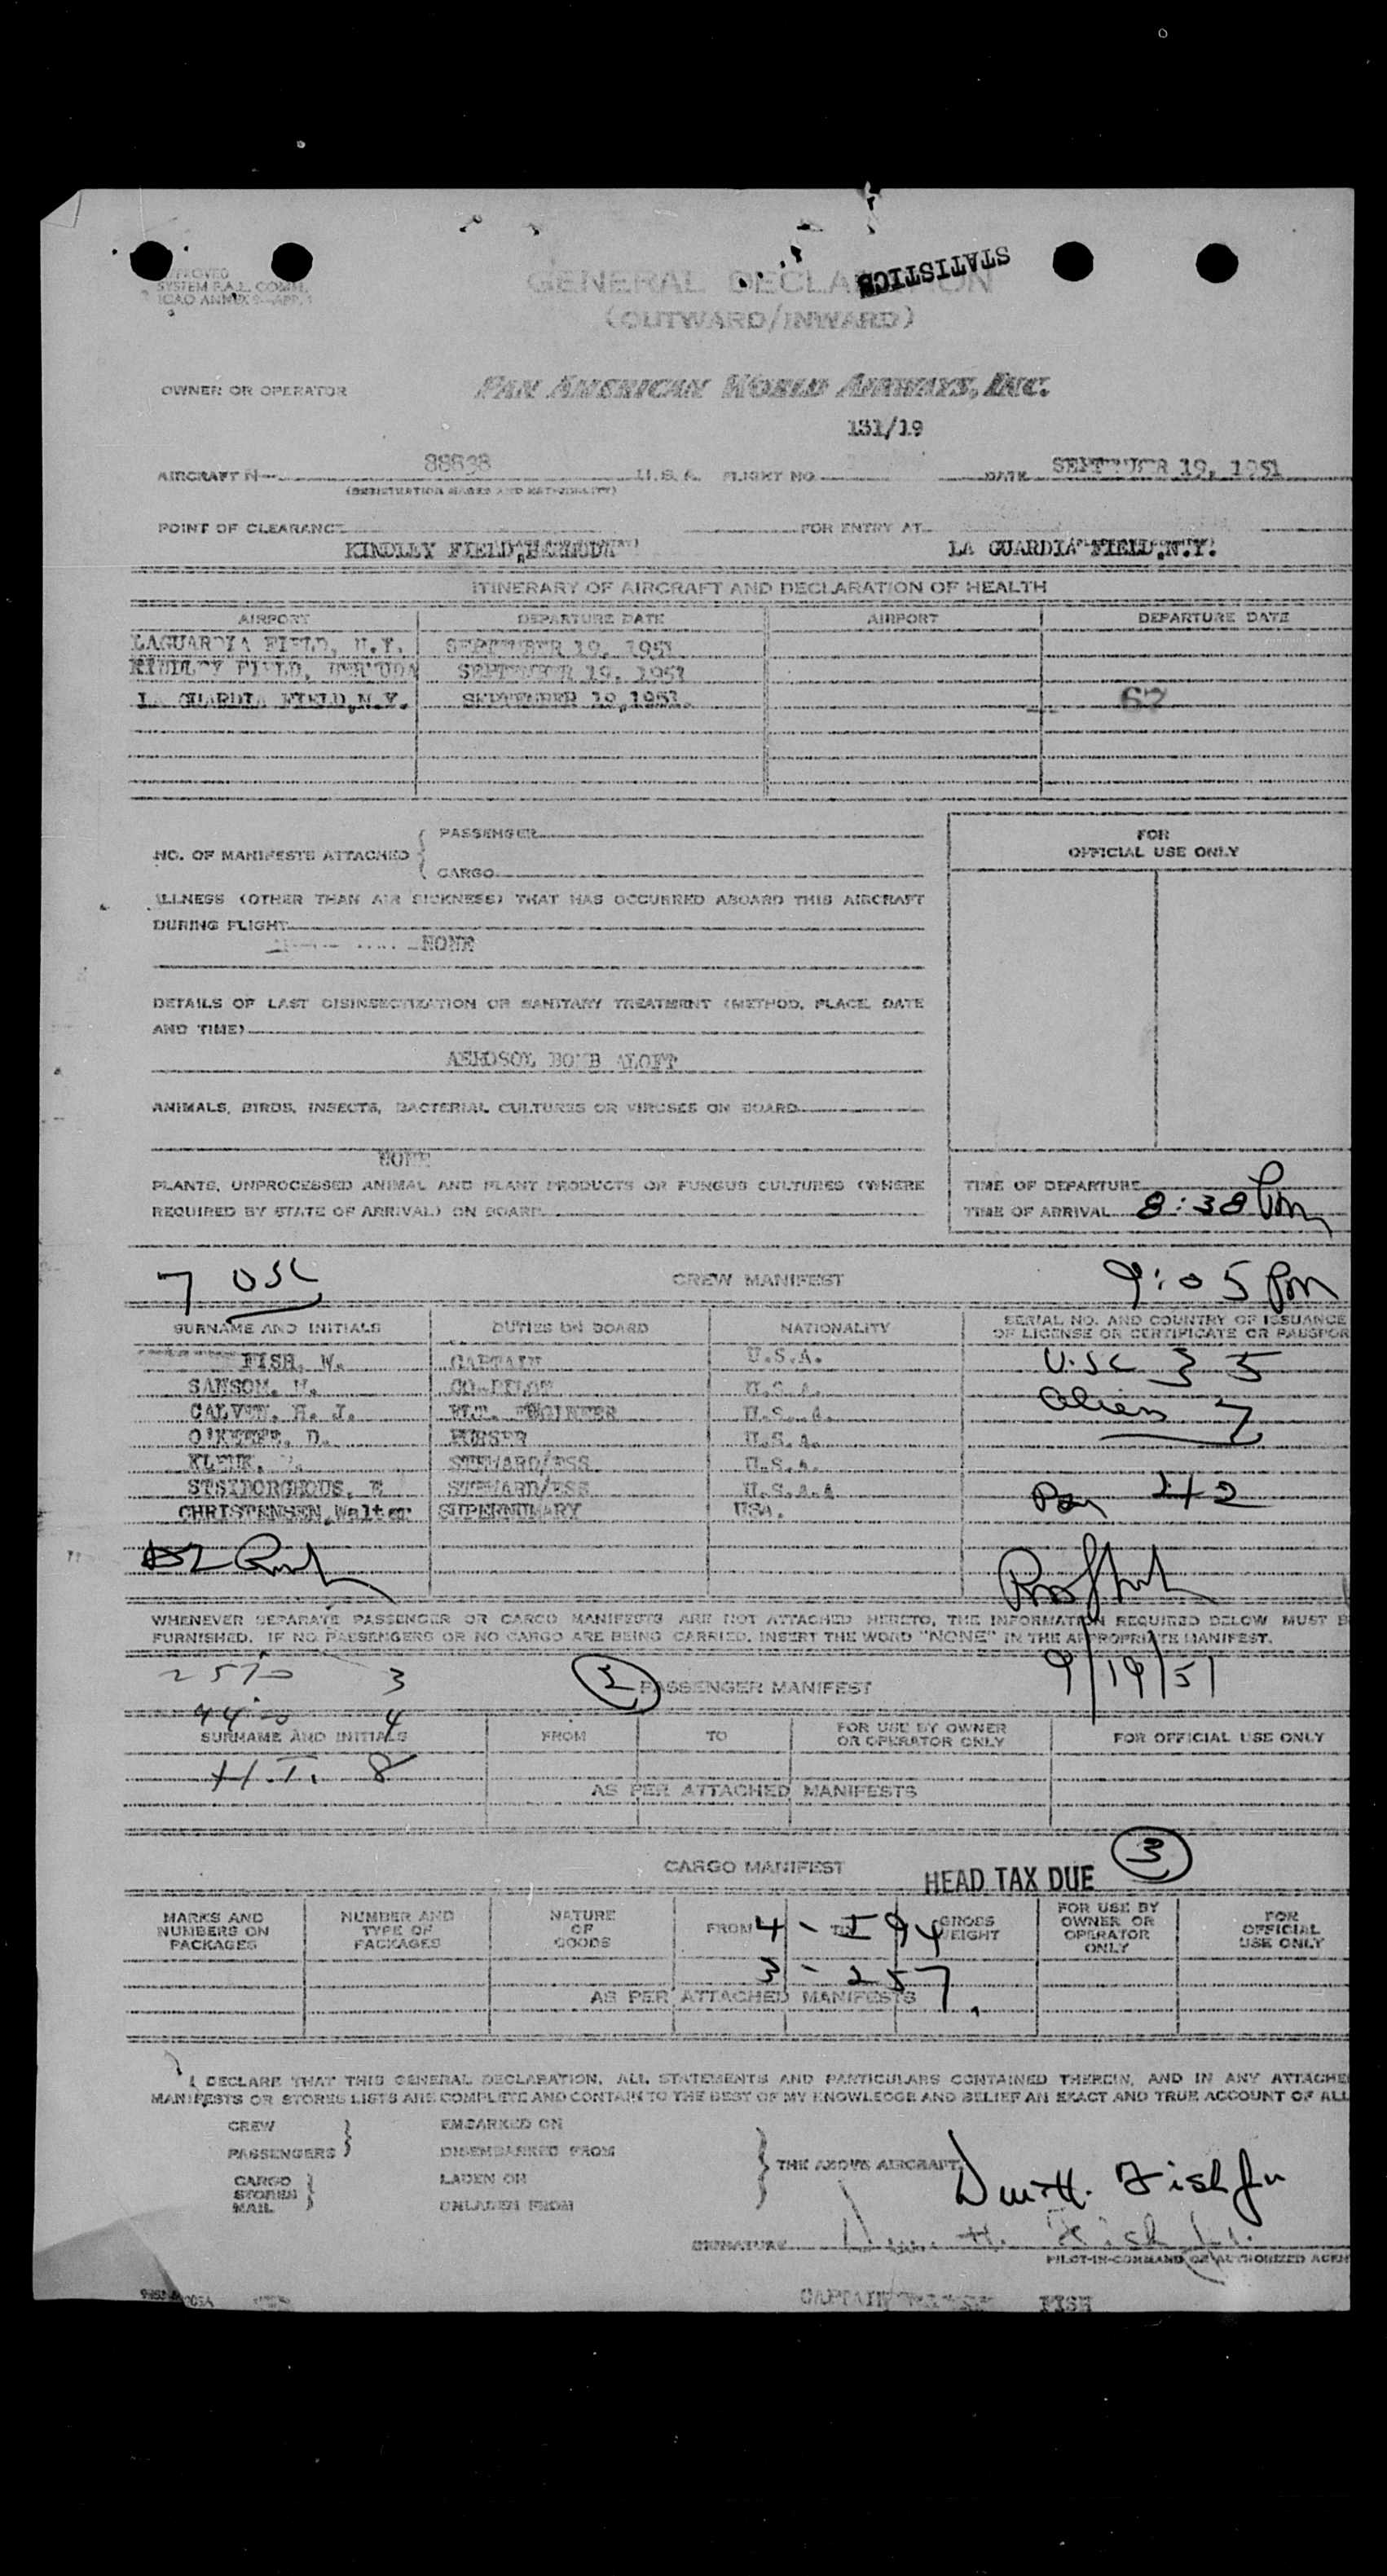 STATISTICS
APPROVED
SYSTEM F.A.L. COMM.
ICAO ANNEX 9-APP. 1
GENERAL DECLARATION
(OUTWARD/INWARD)
OWNER OR OPERATOR PAN AMERICAN WORLD AIRWAYS, INC.
131/19
AIRCRAFT N- 88838 U.S.A. FLIGHT NO. DATE SEPTEMBER 19, 1951
(REGISTRATION MARKS AND NATIONALITY)
POINT OF CLEARANCE FOR ENTRY AT
KINDLEY FIELD, BERMUDA LA GUARDIA FIELD, N.Y.
ITINERARY OF AIRCRAFT AND DECLARATION OF HEALTH
AIRPORT DEPARTURE DATE AIRPORT DEPARTURE DATE
LAGUARDIA FIELD, N.Y. SEPTEMBER 19, 1951
KINDLEY FIELD, BERMUDA SEPTEMBER 19, 1951
LA GUARDIA FIELD,N.Y. SEPTEMBER 19,1951. 62
NO. OF MANIFESTS ATTACHED { PASSENGER
CARGO
FOR
OFFICIAL USE ONLY
ILLNESS (OTHER THAN AIR SICKNESS) THAT HAS OCCURRED ABOARD THIS AIRCRAFT
DURING FLIGHT
NONE
DETAILS OF LAST DISINSECTIZATION OR SANITARY TREATMENT (METHOD, PLACE, DATE
AND TIME)
AEROSOL BOMB ALOFT
ANIMALS, BIRDS, INSECTS, BACTERIAL CULTURES OR VIRUSES ON BOARD
NONE
PLANTS, UNPROCESSED ANIMAL AND PLANT PRODUCTS OR FUNGUS CULTURES (WHERE
REQUIRED BY STATE OF ARRIVAL) ON BOARD
TIME OF DEPARTURE
TIME OF ARRIVAL 8:38 Pm
7 USC CREW MANIFEST 9:05 Pm
SURNAME AND INITIALS DUTIES ON BOARD NATIONALITY SERIAL NO. AND COUNTRY OF ISSUANCE
OF LICENSE OR CERTIFICATE OR PASSPOR
FISH, W. CAPTAIN U.S.A. U.S.C 35
SANSOM, CO-PILOT U.S.A. Aliens 7
CALVEN, H. J. FLT. ENGINEER U.S.A.
O'KEEFE, D. PURSER U.S.A.
STEWARD/ESS U.S.A.
STEWARD/ESS U.S.A.A
CHRISTENSEN,Walter SUPERNUMARY USA.
WHENEVER SEPARATE PASSENGER OR CARGO MANIFESTS ARE NOT ATTACHED HERETO, THE INFORMATION REQUIRED BELOW MUST B
FURNISHED. IF NO PASSENGERS OR NO CARGO ARE BEING CARRIED, INSERT THE WORD "NONE" IN THE APPROPRIATE MANIFEST.
3 PASSENGER MANIFEST 9/19/51
4
SURNAME AND INITIALS FROM TO FOR USE BY OWNER
OR OPERATOR ONLY FOR OFFICIAL USE ONLY
H.T. 8
AS PER ATTACHED MANIFESTS
CARGO MANIFEST HEAD TAX DUE 3
MARKS AND
NUMBERS ON
PACKAGES NUMBER AND
TYPE OF
PACKAGES NATURE
OF
GOODS FROM TO GROSS
WEIGHT FOR USE BY
OWNER OR
OPERATOR
ONLY FOR
OFFICIAL
USE ONLY
4 - I 94
3 - 257
AS PER ATTACHED MANIFESTS
I DECLARE THAT THIS GENERAL DECLARATION, ALL STATEMENTS AND PARTICULARS CONTAINED THEREIN, AND IN ANY ATTACHE
MANIFESTS OR STORES LISTS ARE COMPLETE AND CONTAIN TO THE BEST OF MY KNOWLEDGE AND BELIEF AN EXACT AND TRUE ACCOUNT OF ALL
CREW
PASSENGERS } EMBARKED ON
DISEMBARKED FROM
CARGO
STORES
MAIL } LADEN ON
UNLADEN FROM
} THE ABOVE AIRCRAFT.
SIGNATURE
PILOT-IN-COMMAND OR AUTHORIZED AGEN
CAPTAIN FISH